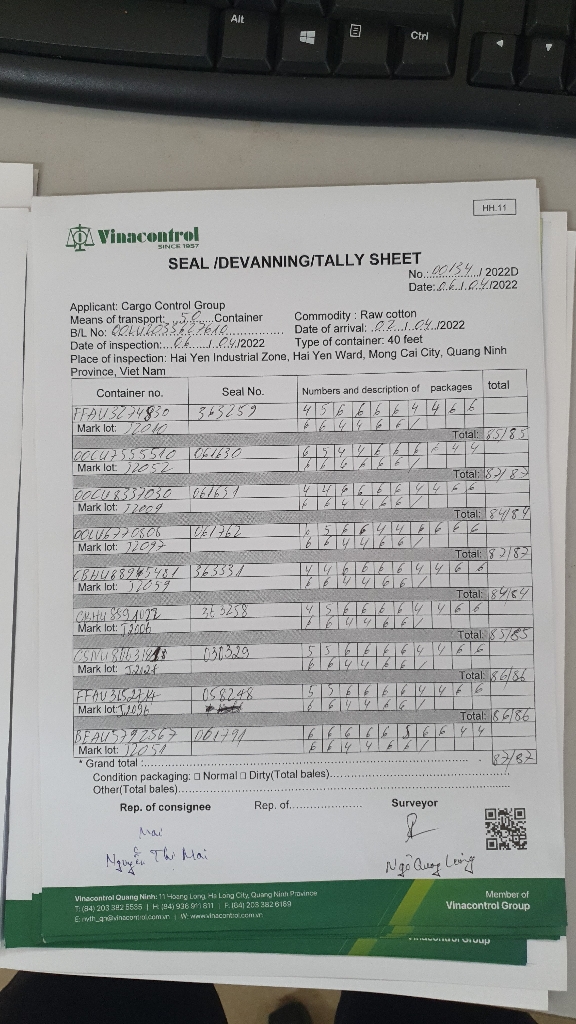 Alt
Ctrl
HH.11
Vinacontrol
SINCE 1957
SEAL /DEVANNING/TALLY SHEET
No.: 00134 / 2022D
Date: 06 / 04/2022
Applicant: Cargo Control Group
Means of transport: 50 Container
Commodity : Raw cotton
B/L No:
Date of arrival: 02 / 04/2022
Date of inspection: 06 / 04/2022
Type of container: 40 feet
Place of inspection: Hai Yen Industrial Zone, Hai Yen Ward, Mong Cai City, Quang Ninh
Province, Viet Nam
Container no. Seal No. Numbers and description of packages total
FFAU3274830 363259 4 5 6 6 6 6 4 4 6 6
Mark lot: J2010 6 6 4 4 6 6 /
Total: 85/85
OOCU7555510 061630
Mark lot: J2052 6 6 6 6 6 6 /
Total: 87/87
OOCU8337030 061631 4 4 6 6 6 6 4 4 6 6
Mark lot: J2009 6 6 4 4 6 6 /
Total: 84/84
OOLU6770806 061762
Mark lot: J2097 6 6 4 4 6 6 /
Total: 87/87
363331 4 4 6 6 6 6 4 4 6 6
Mark lot: J2059 6 6 4 4 6 6 /
Total: 84/84
4 5 6 6 6 6 4 4 6 6
Mark lot: J2006 6 6 4 4 6 6 /
Total: 85/85
030329 5 5 6 6 6 6 4 4 6 6
Mark lot: J2121 6 6 4 4 6 6 /
Total: 86/86
058248 5 5 6 6 6 6 4 4 6 6
Mark lot: J2096 6 6 4 4 6 6 /
Total: 86/86
BEAU5792567 061791
Mark lot: J2051 6 6 4 4 6 6 /
* Grand total : 87/87
Condition packaging: □ Normal □ Dirty(Total bales)
Other(Total bales)
Rep. of consignee Rep. of Surveyor
Mai
Nguyễn Thị Mai
Ngô Quang Lương
Vinacontrol Quang Ninh: 11 Hoang Long, Ha Long City, Quang Ninh Province
T: (84) 203 382 5535 | H: (84) 936 911 811 | F: (84) 203 382 6189
E: nvth_qn@vinacontrol.com.vn | W: www.vinacontrol.com.vn
Member of
Vinacontrol Group
Vinacontrol Group